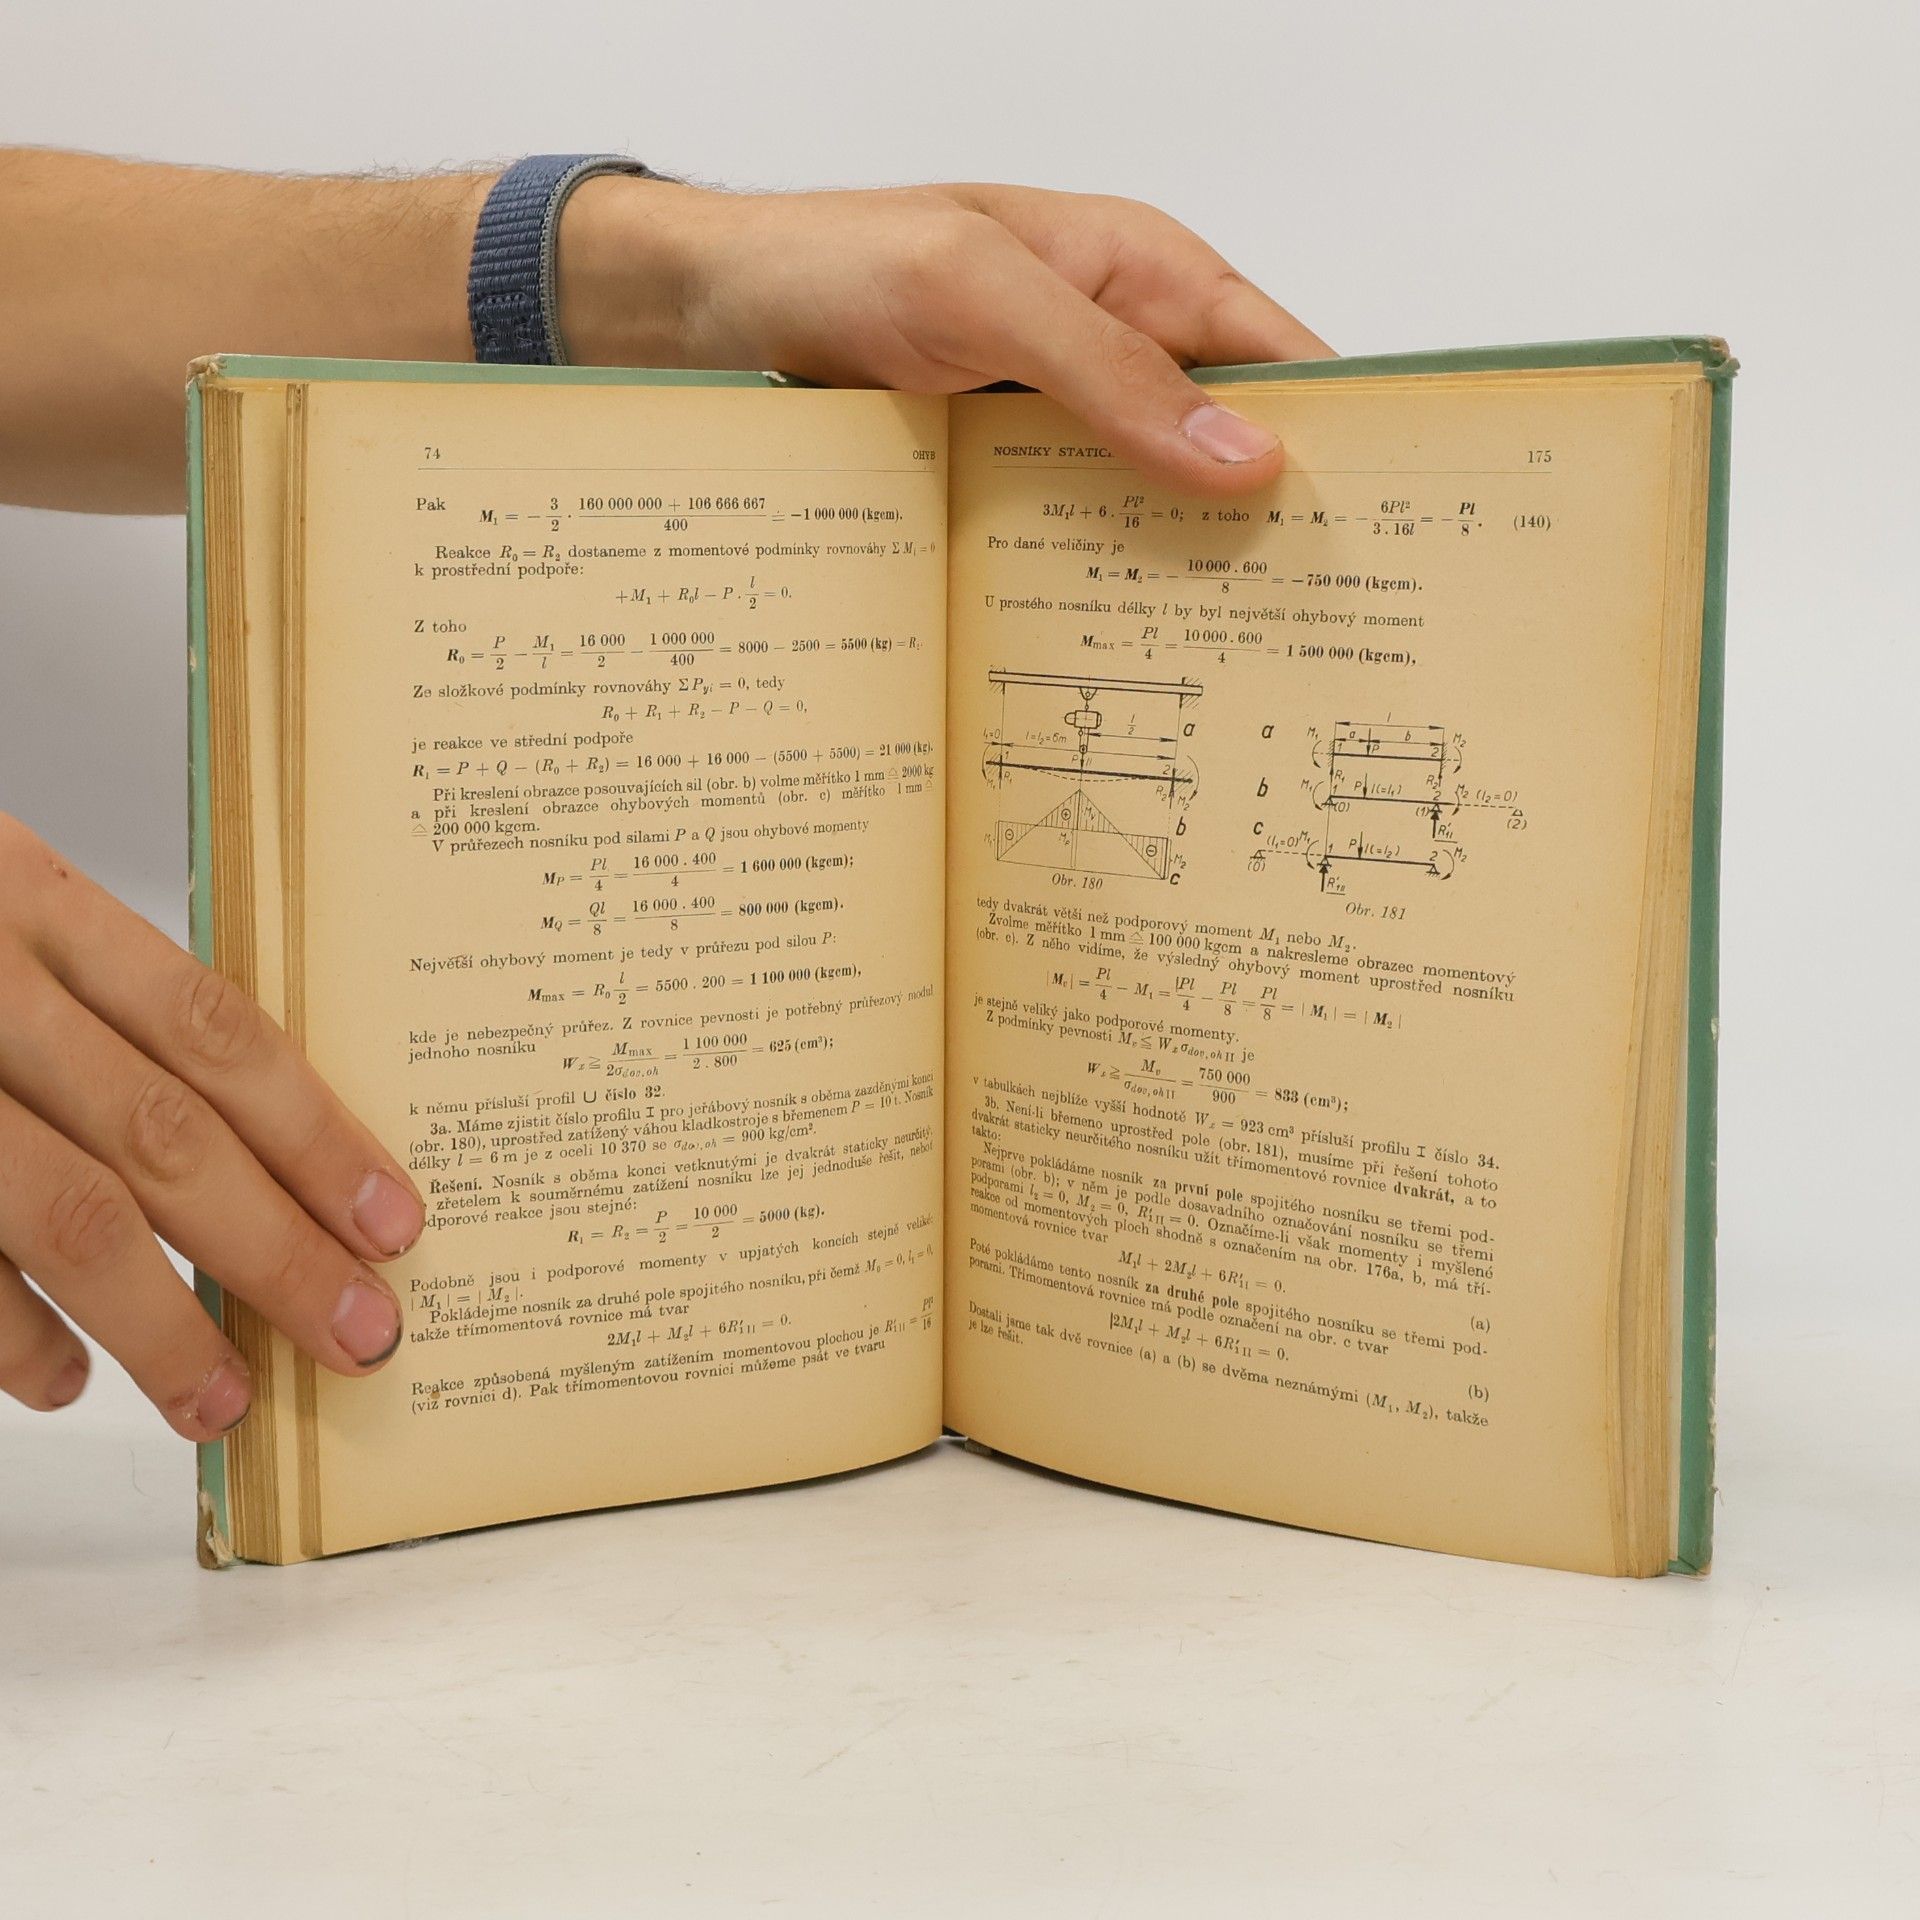 74 OHYB
Pak M₁ = − 3/2 · (160 000 000 + 106 666 667)/400 ≐ −1 000 000 (kgcm).
Reakce R₀ = R₂ dostaneme z momentové podmínky rovnováhy Σ Mᵢ = 0
k prostřední podpoře:
+M₁ + R₀l − P · l/2 = 0.
Z toho
R₀ = P/2 − M₁/l = 16 000/2 − 1 000 000/400 = 8000 − 2500 = 5500 (kg) = R₂.
Ze složkové podmínky rovnováhy Σ Pyi = 0, tedy
R₀ + R₁ + R₂ − P − Q = 0,
je reakce ve střední podpoře
R₁ = P + Q − (R₀ + R₂) = 16 000 + 16 000 − (5500 + 5500) = 21 000 (kg).
Při kreslení obrazce posouvajících sil (obr. b) volme měřítko 1 mm ≙ 2000 kg
a při kreslení obrazce ohybových momentů (obr. c) měřítko 1 mm ≙
≙ 200 000 kgcm.
V průřezech nosníku pod silami P a Q jsou ohybové momenty
M_P = Pl/4 = 16 000 . 400/4 = 1 600 000 (kgcm);
M_Q = Ql/8 = 16 000 . 400/8 = 800 000 (kgcm).
Největší ohybový moment je tedy v průřezu pod silou P:
Mmax = R₀ l/2 = 5500 . 200 = 1 100 000 (kgcm),
kde je nebezpečný průřez. Z rovnice pevnosti je potřebný průřezový modul
jednoho nosníku
Wx ≧ Mmax/2σdov,oh = 1 100 000/2 . 800 = 625 (cm³);
k němu přísluší profil U číslo 32.
3a. Máme zjistit číslo profilu I pro jeřábový nosník s oběma zazděnými konci
(obr. 180), uprostřed zatížený váhou kladkostroje s břemenem P = 10 t. Nosník
délky l = 6 m je z oceli 10 370 se σdov,oh = 900 kg/cm².
Řešení. Nosník s oběma konci vetknutými je dvakrát staticky neurčitý.
zřetelem k souměrnému zatížení nosníku lze jej jednoduše řešit, neboť
dporové reakce jsou stejné:
R₁ = R₂ = P/2 = 10 000/2 = 5000 (kg).
Podobně jsou i podporové momenty v upjatých koncích stejně veliké:
| M₁ | = | M₂ |.
Pokládejme nosník za druhé pole spojitého nosníku, při čemž M₀ = 0, l₁ = 0,
takže třímomentová rovnice má tvar
2M₁l + M₂l + 6R′₁II = 0.
Reakce způsobená myšleným zatížením momentovou plochou je R′₁II = Pl²/16
(viz rovnici d). Pak třímomentovou rovnici můžeme psát ve tvaru
NOSNÍKY STATIC 175
3M₁l + 6 . Pl²/16 = 0; z toho M₁ = M₂ = − 6Pl²/3 . 16l = − Pl/8 . (140)
Pro dané veličiny je
M₁ = M₂ = − 10 000 . 600/8 = −750 000 (kgcm).
U prostého nosníku délky l by byl největší ohybový moment
Mmax = Pl/4 = 10 000 . 600/4 = 1 500 000 (kgcm),
l/2 a
l₁=0 l=l₂=6m
1 P 2
M₁ R₁ R₂ M₂
b
M₁ ⊕ Mᵥ Mₚ ⊖ ⊖ M₂
c
Obr. 180
a M₁ l a b M₂
1 P 2
R₁ R₂
b M₁ 1 P l(=l₁) 2 M₂ (l₂=0)
(0) (1) R′₁I (2)
c (l₁=0) M₁ 1 P l(=l₂) 2 M₂
(0) R′₁II
Obr. 181
tedy dvakrát větší než podporový moment M₁ nebo M₂.
Zvolme měřítko 1 mm ≙ 100 000 kgcm a nakresleme obrazec momentový
(obr. c). Z něho vidíme, že výsledný ohybový moment uprostřed nosníku
| Mᵥ | = Pl/4 − M₁ = Pl/4 − Pl/8 = Pl/8 = | M₁ | = | M₂ |
je stejně veliký jako podporové momenty.
Z podmínky pevnosti Mᵥ ≦ Wx σdov,oh II je
Wx ≧ Mᵥ/σdov,oh II = 750 000/900 = 833 (cm³);
v tabulkách nejblíže vyšší hodnotě Wx = 923 cm³ přísluší profilu I číslo 34.
3b. Není-li břemeno uprostřed pole (obr. 181), musíme při řešení tohoto
dvakrát staticky neurčitého nosníku užít třímomentové rovnice dvakrát, a to
takto:
Nejprve pokládáme nosník za první pole spojitého nosníku se třemi pod-
porami (obr. b); v něm je podle dosavadního označování nosníku se třemi
podporami l₂ = 0, M₂ = 0, R′₁II = 0. Označíme-li však momenty i myšlené
reakce od momentových ploch shodně s označením na obr. 176a, b, má tří-
momentová rovnice tvar
M₁l + 2M₂l + 6R′₁I = 0. (a)
Poté pokládáme tento nosník za druhé pole spojitého nosníku se třemi pod-
porami. Třímomentová rovnice má podle označení na obr. c tvar
2M₁l + M₂l + 6R′₁II = 0. (b)
Dostali jsme tak dvě rovnice (a) a (b) se dvěma neznámými (M₁, M₂), takže
je lze řešit.